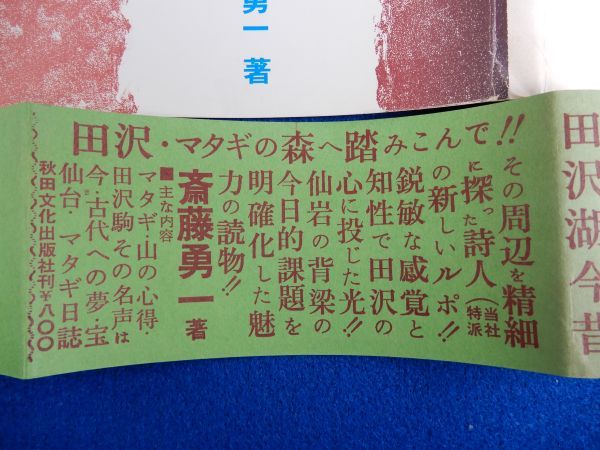 勇一 著
田沢湖今昔
田沢・マタギの森へ踏みこんで!!
その周辺を精細
に探った詩人(当社特派)
の新しいルポ!!
鋭敏な感覚と
知性で田沢の
心に投じた光!!
仙岩の背梁の
今日的課題を
明確化した魅
力の読物!!
斎藤勇一著
主な内容
マタギ・山の心得・
田沢駒その名声は
今・古代への夢・宝
仙台・マタギ日誌
秋田文化出版社刊¥八〇〇